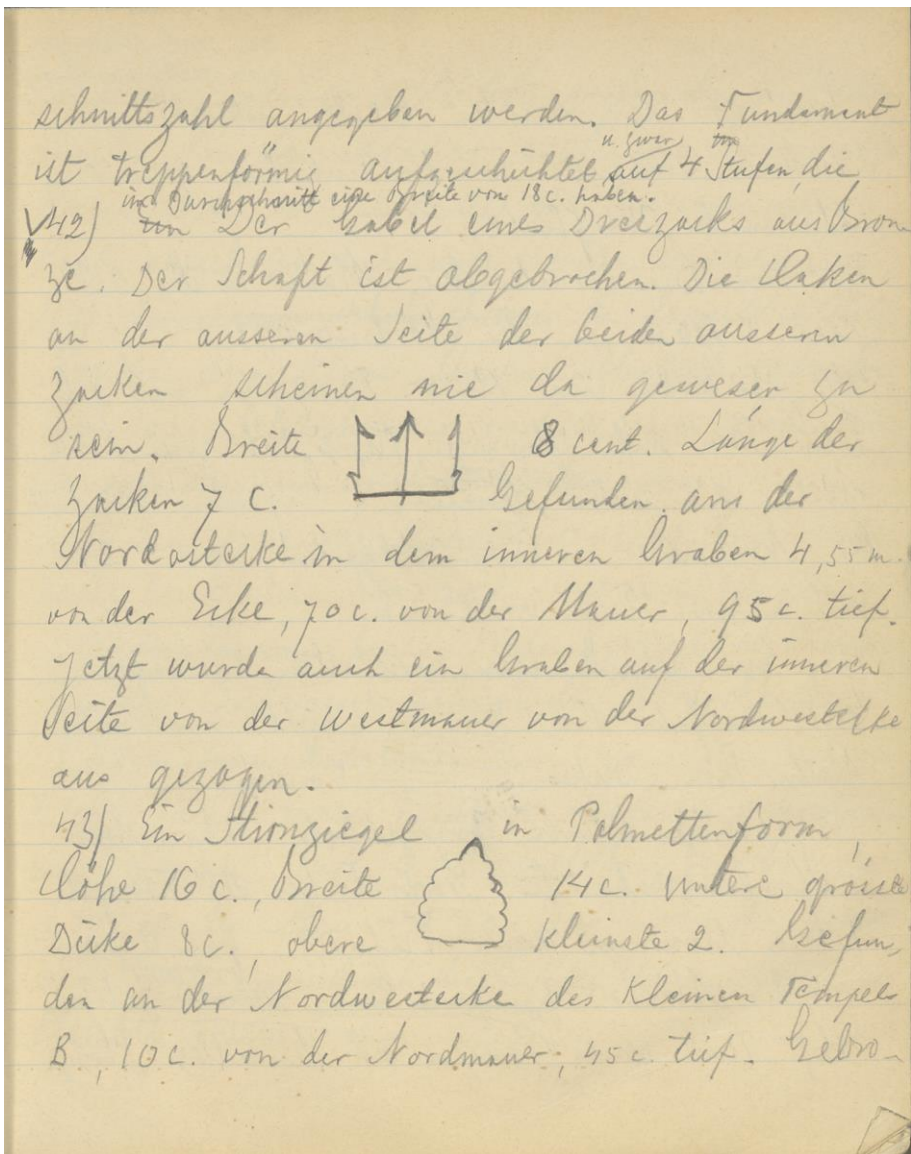 schnittszahl angegeben werden. Das Fundament
ist treppenförmig aufgeschichtet u. zwar auf 4 Stufen, die
im Durchschnitt eine Breite von 18 c. haben.
42) Der Gabel eines Dreizacks aus Bron-
ze. Der Schaft ist abgebrochen. Die Haken
an der ausseren Seite der beiden ausseren
Zacken scheinen nie da gewesen zu
sein. Breite 8 cent. Länge der
Zacken 7 c. Gefunden an der
Nordostecke in dem inneren Graben 4,55 m.
von der Ecke, 70 c. von der Mauer, 95 c. tief.
Jetzt wurde auch ein Graben auf der inneren
Seite von der Westmauer von der Nordwestecke
aus gezogen.
43) Ein Stirnziegel in Palmettenform,
Höhe 16 c., Breite 14 c. Untere grösste
Dicke 8 c., obere kleinste 2. Gefun-
den an der Nordwestecke des Kleinen Tempels
B., 10 c. von der Nordmauer, 45 c. tief. Gebro-